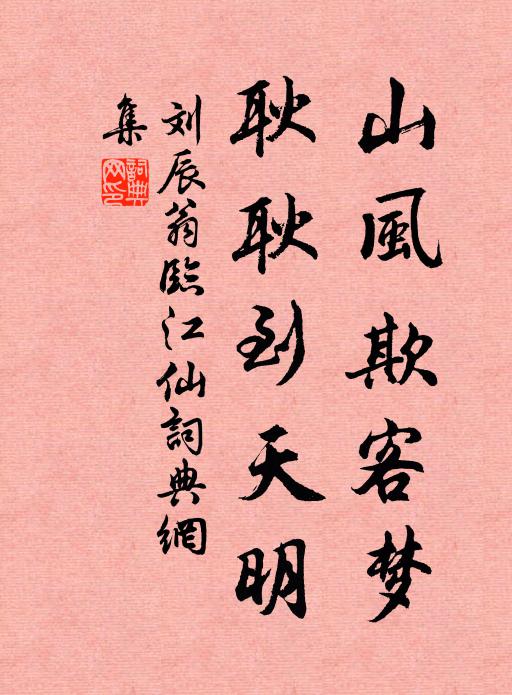 山風欺客梦
耿耿到天明
刘辰翁臨江仙詞典網
集
詞典網印